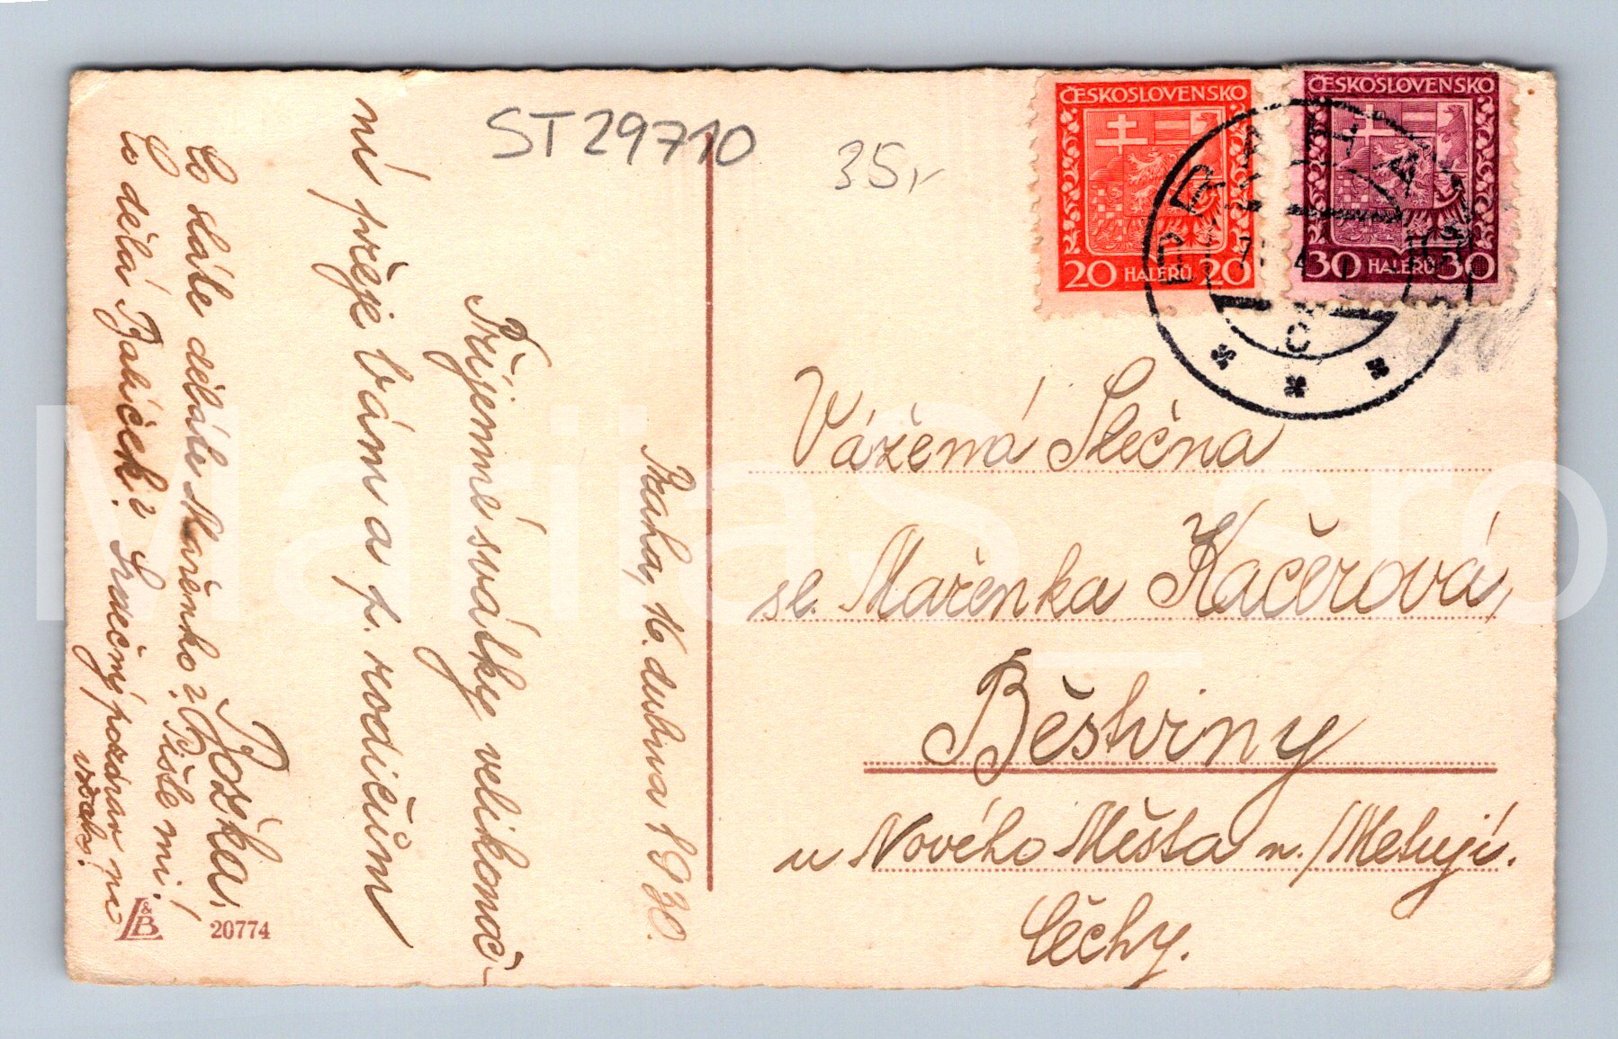 ST29710
35,-
ČESKOSLOVENSKO
20 HALÉŘŮ 20
ČESKOSLOVENSKO
30 HALÉŘŮ 30
PRAHA
Praha, 16. dubna 1930.
Příjemné svátky velikonoč-
ní přeje Vám a p. rodičům
Joška.
Co stále děláte Mařenko? Pište mi!
Co dělá Jahiček? Srdečný pozdrav na
Vážená Slečna
sl. Mařenka Kačerová,
Běstviny
u Nového Města n./Metují.
Čechy.
L&B
20774
MariaS_sro